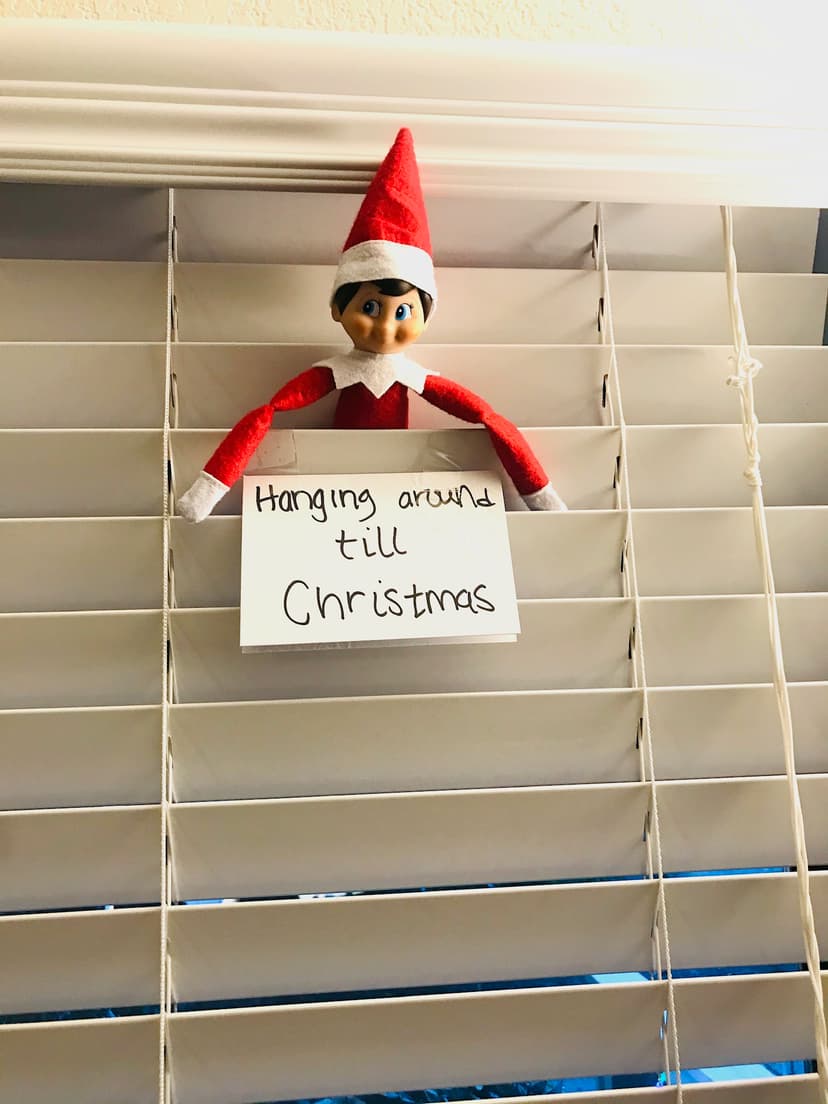 Hanging around
till
Christmas